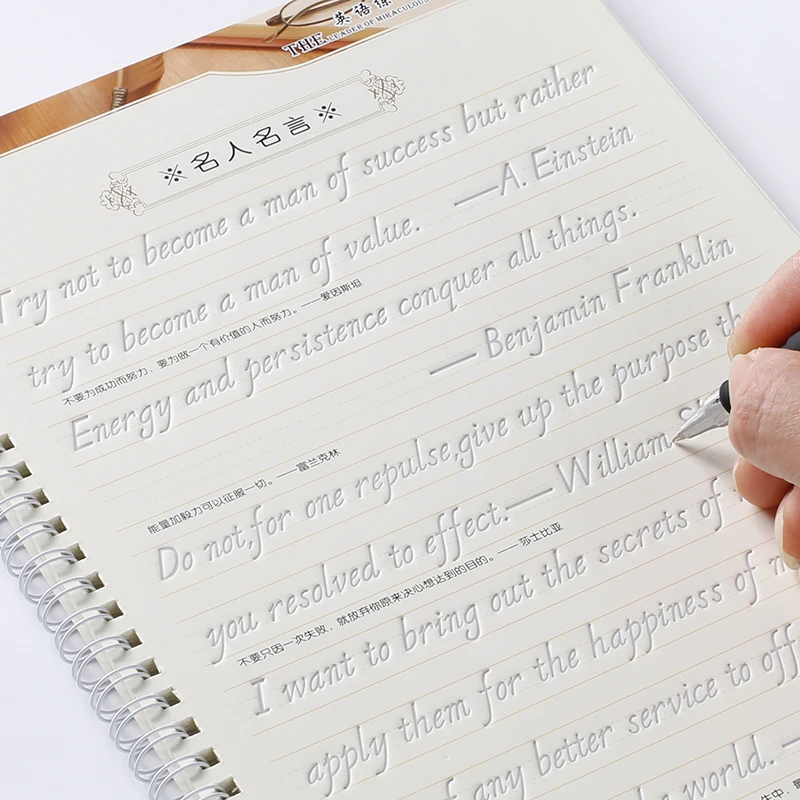 THE 英语练
LEADER OF MIRACULOUS
※名人名言※
Try not to become a man of success but rather
try to become a man of value. —A. Einstein
不要为成功而努力，要为做一个有价值的人而努力。——爱因斯坦
Energy and persistence conquer all things.
— Benjamin Franklin
能量加毅力可以征服一切。——富兰克林
Do not,for one repulse,give up the purpose th
you resolved to effect.—William
不要只因一次失败，就放弃你原来决心想达到的目的。——莎士比亚
I want to bring out the secrets of
apply them for the happiness of
any better service to off
world. —